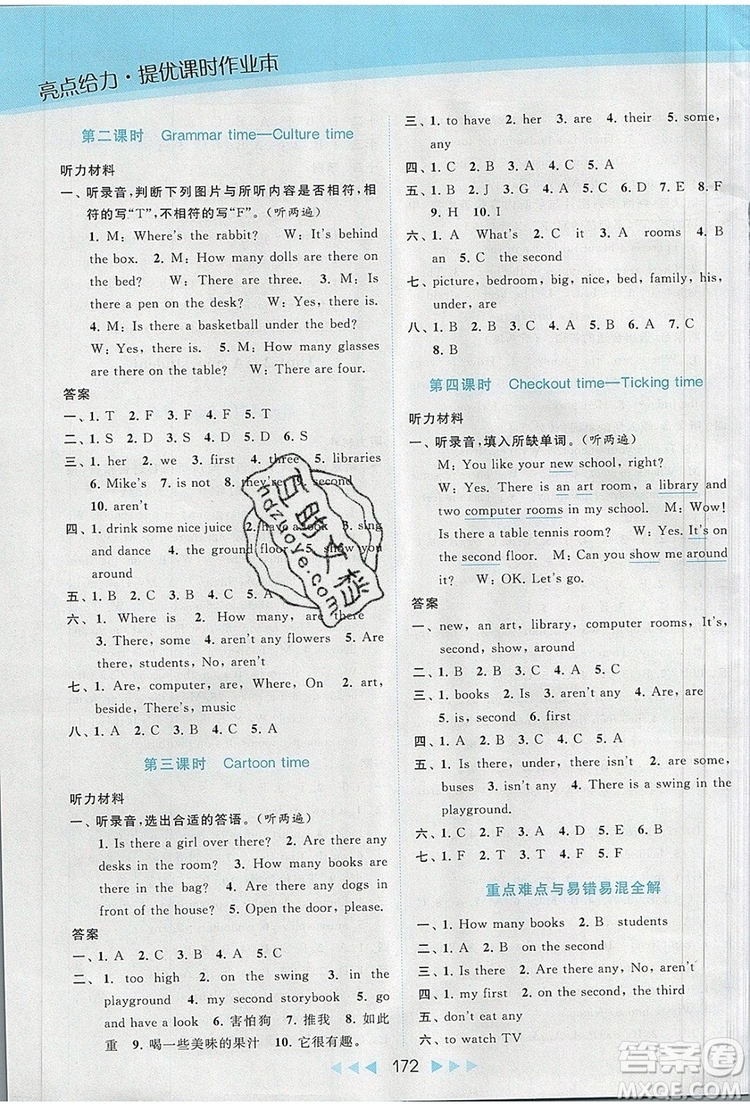 亮点给力·提优课时作业本
第二课时 Grammar time—Culture time
听力材料
一、听录音,判断下列图片与所听内容是否相符,相
符的写“T”,不相符的写“F”。(听两遍)
1. M: Where's the rabbit? W: It's behind
the box. 2. M: How many dolls are there on
the bed? W: There are three. 3. M: Is
there a pen on the desk? W: Yes, there is.
4. M: Is there a basketball under the bed?
W: Yes, there is. 5. M: How many glasses
are there on the table? W: There are four.
答案
一、1. T 2. F 3. F 4. T 5. T
二、1. S 2. D 3. S 4. S 5. D 6. S
三、1. her 2. we 3. first 4. three 5. libraries
6. Mike's 7. isn't 8. they're 9. second
10. aren't
四、1. drink some nice juice 2. have a look 3. sing
and dance 4. the ground floor 5. show you
around
五、1. B 2. C 3. A 4. B 5. C 6. C 7. B
六、1. Where is 2. How many, are there
3. There, some 4. aren't any flowers 5. Are
there, students, No, aren't
七、1. Are, computer, are, Where, On 2. art,
beside, There's, music
八、1. A 2. C 3. B 4. C 5. A
第三课时 Cartoon time
听力材料
一、听录音,选出合适的答语。(听两遍)
1. Is there a girl over there? 2. Are there any
desks in the room? 3. How many books are
there in the bag? 4. Are there any dogs in
front of the house? 5. Open the door, please.
答案
一、1. A 2. A 3. C 4. B 5. C
二、1. too high 2. on the swing 3. in the
afternoon 4. my second storybook 5. go
and have a look 6. 害怕狗 7. 推我 8. 如此
重 9. 喝一些美味的果汁 10. 它很有趣。
三、1. to have 2. her 3. are 4. their 5. some,
any
四、1. C 2. B 3. A 4. C 5. A
五、1. B 2. J 3. G 4. D 5. A 6. C 7. E 8. F
9. H 10. I
六、1. A What's 2. C it 3. A rooms 4. B
an 5. C the second
七、picture, bedroom, big, nice, bed, family, his,
under, are
八、1. B 2. B 3. C 4. C 5. A 6. A 7. C 8. C
9. B
第四课时 Checkout time—Ticking time
听力材料
一、听录音,填入所缺单词。(听两遍)
M: You like your new school, right?
W: Yes. There is an art room, a library and
two computer rooms in my school. M: Wow!
Is there a table tennis room? W: Yes. It's on
the second floor. M: Can you show me around
it? W: OK. Let's go.
答案
一、new, an art, library, computer rooms, It's,
second, show, around
二、1. B 2. B 3. C 4. A 5. C
三、1. books 2. Is 3. aren't any 4. Are, are
5. is, second 6. first
四、1. C 2. C 3. A 4. C 5. C 6. A
五、1. There isn't any 2. How many 3. any,
buses 4. There isn't 5. There is a swing in the
playground.
六、1. C 2. F 3. A 4. D 5. E 6. B
七、1. F 2. F 3. T 4. F 5. T
重点难点与易错易混全解
一、1. How many books 2. B students
二、1. A 2. on the second
三、1. Is there 2. Are there any/No, there aren't
四、1. my first 2. on the second, the third
五、don't eat any
六、to watch TV
172
百助文档
hdzuoye.com
答案圈
MXQE.COM